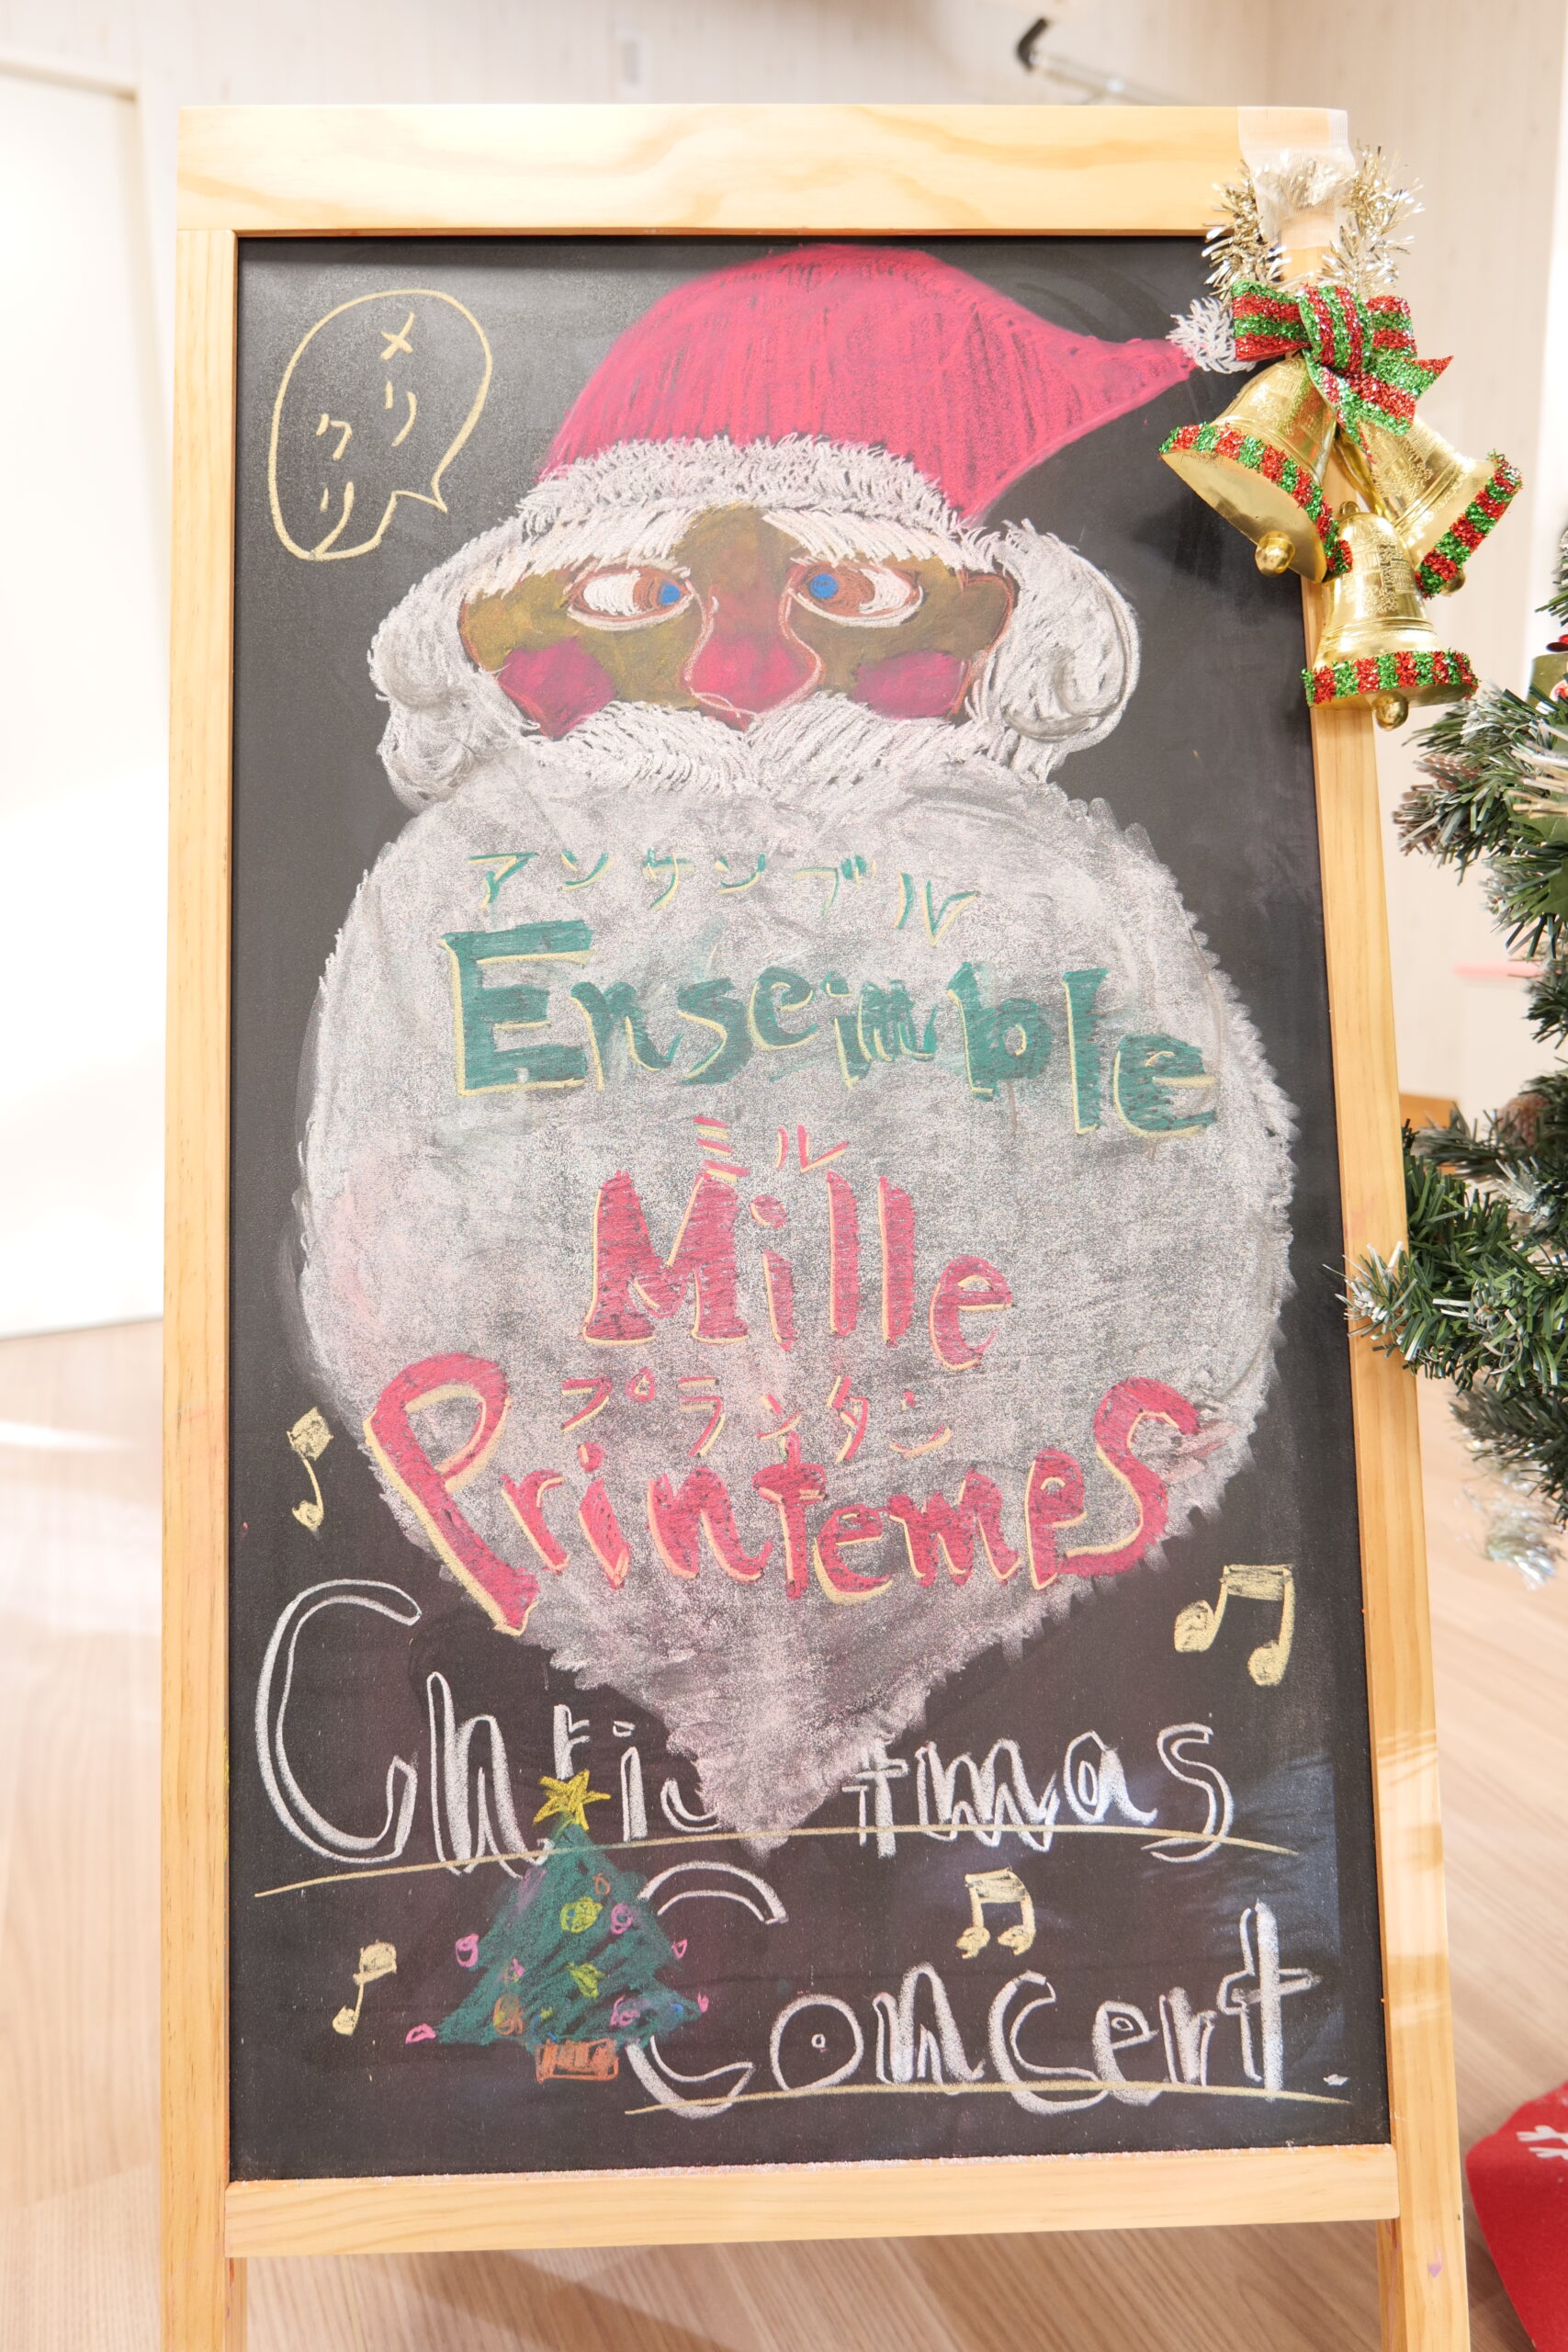 メリ
クリ
アンサンブル
Ensemble
ミル
Mille
プランタン
Printemps
Christmas
Concert.